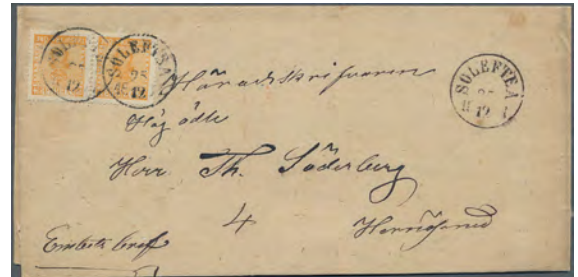 SOLEFTEÅ
25
12
SOLEFTEÅ
12
Häradsskrifvaren
Hög ädle
Herr Th. Söderberg
4
Hernösand
Embets bref